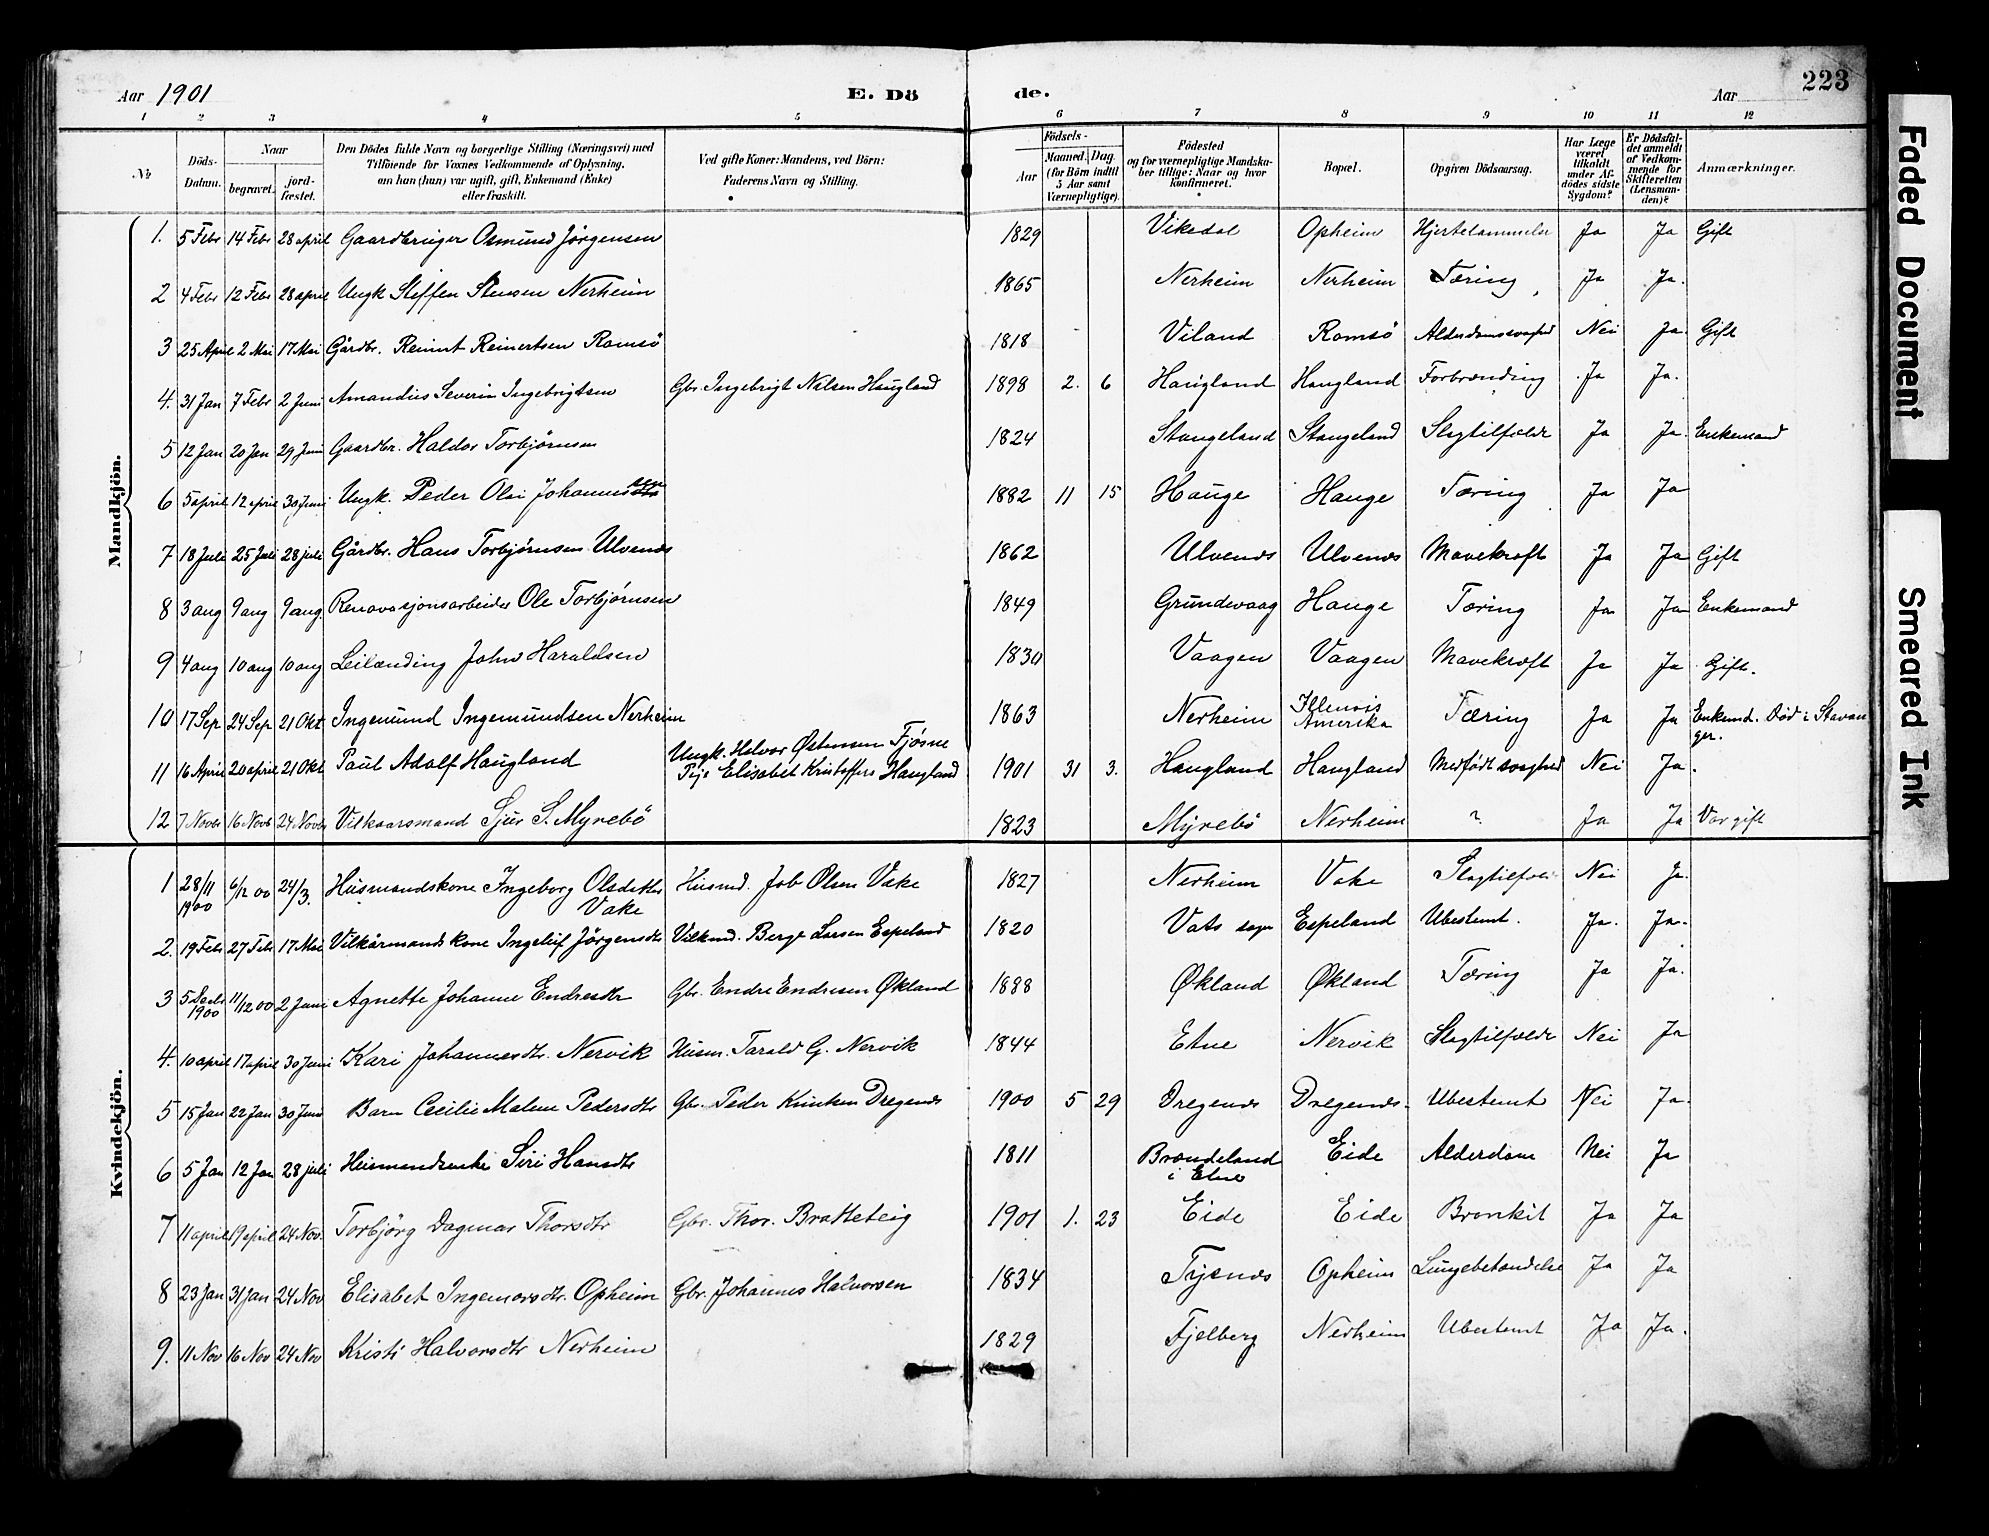 Aar 1901 E. Dö de. Aar 223
1 2 3 4 5 6 7 8 9 10 11 12
№ Döds-Datum. Naar begravet. jordfæstet. Den Dödes fulde Navn og borgerlige Stilling (Næringsvei) med Tilföiende for Voxnes Vedkommende af Oplysning, om han (hun) var ugift, gift, Enkemand (Enke) eller fraskilt. Ved gifte Koner: Mandens, ved Börn: Faderens Navn og Stilling. Födsels- Aar Maaned. Dag. (for Börn indtil 5 Aar samt Værnepligtige). Födested og for værnepligtige Mandskaber tillige: Naar og hvor konfirmeret. Bopæl. Opgiven Dödsaarsag. Har Læge været tilkaldt under Afdödes sidste Sygdom? Er Dödsfaldet anmeldt af Vedkommende for Skifteretten (Lensmanden)? Anmærkninger.
Mandkjön.
1. 5 Febr 14 Febr 28 april Gaardbruger Osmund Jörgensen 1829 Vikedal Opheim Hjertelammelse Ja Ja Gift
2 4 Febr 12 Febr 28 april Ungk Steffen Stensen Nerheim 1865 Nerheim Nerheim Tæring Ja Ja.
3 25 April 2 Mai 17 Mai Gårdbr. Reinert Reinertsen Romsö 1818 Viland Romsö Alderdomssvaghed Nei Ja Gift
4. 31 Jan 7 Febr 2 Juni Amandus Severin Ingebrigtsen Gbr. Ingebrigt Nilsen Haugland 1898 2. 6 Haugland Haugland Forbrænding Ja Ja.
5 12 Jan 20 Jan 29 Juni Gaardbr. Haldor Torbjörnsen 1824 Stangeland Stangeland Slagtilfælde Ja Ja. Enkemand
6 5 april 12 april 30 Juni Ungk. Peder Olai Johannessen 1882 11 15 Hauge Hauge Tæring Ja Ja
7 18 Juli 25 Juli 28 juli Gårdbr. Hans Torbjørnsen Ulvenes 1862 Ulvenes Ulvenes Mavekræft Ja Ja Gift
8 3 aug 9 aug 9 aug. Renovasjonsarbeider Ole Torbjørnsen 1849 Grundevaag Hauge Tæring Ja Ja Enkemand
9 4 aug 10 aug 10 aug Leilænding John Haraldsen 1830 Vaagen Vaagen Mavekræft Ja Ja Gift.
10 17 Sep 24 Sep 21 Okt Ingemund Ingemundsen Nerheim 1863 Nerheim Illenois Amerika Tæring Ja Ja Enkemd. Död i Stavanger.
11 16 April 20 april 21 Okt Paul Adolf Haugland Ungk. Halvor Østensen Fjösne Pige Elisabet Kristoffers Haugland 1901 31 3. Haugland Haugland Medfödt svaghed Nei Ja.
12 7 Novbr 16 Novb 24 Novbr Vilkaarsmand Sjur S. Myrebö 1823 Myrebö Nerheim ? Ja Ja Var gift
Kvindekjön.
1 28/11 1900 6/12 00 24/3. Husmandskone Ingeborg Olsdatter Vake Husmd. Job Olsen Vake 1827 Nerheim Vake Slagtilfælde Nei Ja.
2. 19 Febr 27 Febr 17 Mai Vilkårmandskone Ingelif Jörgensdtr Vilkmd. Berge Larsen Espeland 1820 Vats sogn Espeland Ubestemt. Ja. Ja.
3 5 Decbr 1900 11/12 00 2 Juni Agnette Johanne Endresdtr Gbr. Endre Endresen Økland 1888 Økland Økland Tæring Ja Ja.
4. 10 april 17 april 30 Juni Kari Johannesdtr. Nervik Husm. Tarald G. Nervik 1844 Etne Nervik Slagtilfælde Nei Ja
5 15 Jan 22 Jan 30 Juni Barn Cecilie Malene Pedersdtr Gbr. Peder Dregenes 1900 5 29 Dregenes Dregenes. Ubestemt Nei Ja.
6 5 Jan 12 Jan 28 juli Husmandsenke Siri Hansdtr 1811 Brændeland i Etne Eide Alderdom Nei Ja
7 11 april 19 april 24 Nov. Torbjörg Dagmar Thorsdtr Gbr. Thor. Bratteteig 1901 1. 23 Eide Eide Bronkit Ja Ja
8 23 Jan 31 Jan 24 Nov Elisabet Ingemorsdtr. Opheim Gbr. Johannes Halvorsen 1834 Tysnes Opheim Lungebetændelse Ja Ja
9. 11 Nov 16 Nov 24 Nov Kristi Halvorsdtr Nerheim 1829 Fjelberg Nerheim Ubestemt Ja Ja.
Faded Document
Smeared Ink